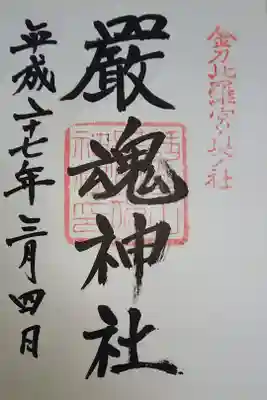 金刀比羅宮奥社
嚴魂神社
平成二十七年三月四日